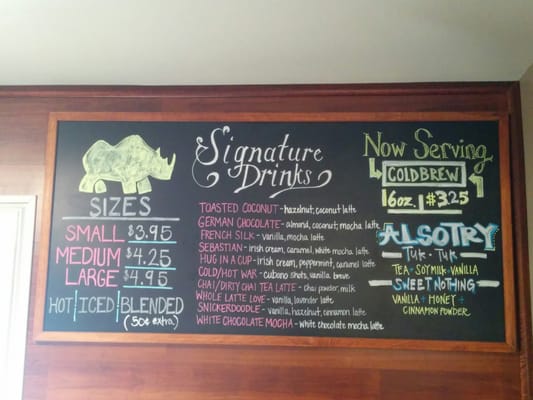 SIZES
SMALL $3.95
MEDIUM $4.25
LARGE $4.95
HOT | ICED | BLENDED
(50¢ extra)
Signature
Drinks
TOASTED COCONUT - hazelnut, coconut latte
GERMAN CHOCOLATE - almond, coconut, mocha latte
FRENCH SILK - vanilla, mocha latte
SEBASTIAN - irish cream, caramel, white mocha latte
HUG IN A CUP - irish cream, peppermint, caramel latte
COLD/HOT WAR - cubano shots, vanilla breve
CHAI/DIRTY CHAI TEA LATTE - chai powder, milk
WHOLE LATTE LOVE - vanilla, lavender latte
SNICKERDOODLE - vanilla, hazelnut, cinnamon latte
WHITE CHOCOLATE MOCHA - white chocolate mocha latte
NOW SERVING
COLDBREW
16oz. $3.25
ALSO TRY
TUK · TUK
TEA · SOY MILK · VANILLA
SWEET NOTHING
VANILLA + HONEY +
CINNAMON POWDER